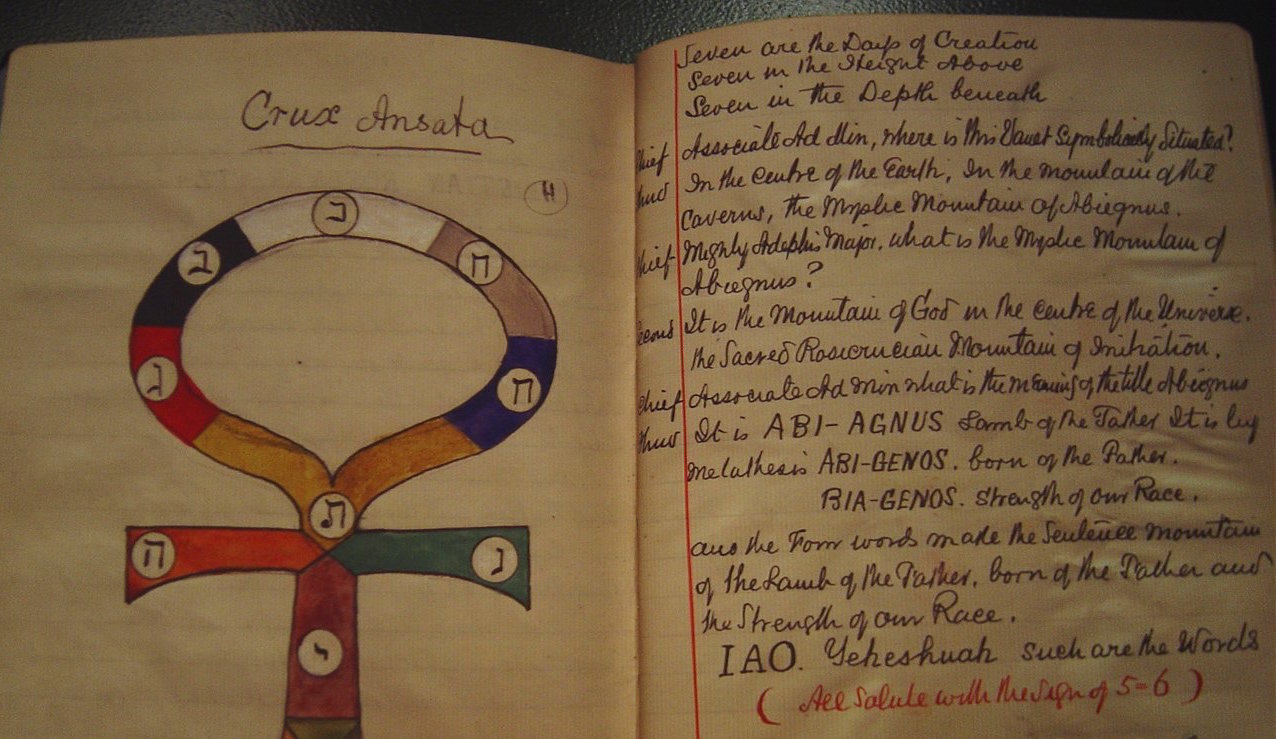 Crux Ansata
H
כ
ב ח
ג ח
ת
ה נ
י
Seven are the Days of Creation
Seven in the Height Above
Seven in the Depth beneath
hief Associate Ad Min, where is this Vault Symbolically Situated?
hird In the centre of the Earth, In the mountain of the
Caverns, the Mystic Mountain of Abiegnus.
hief Mighty Adeptus Major, what is the Mystic Mountain of
Abiegnus?
econd It is the Mountain of God in the centre of the Universe.
the Sacred Rosicrucian Mountain of Initiation.
Chief Associate Ad Min what is the meaning of the title Abiegnus
third It is ABI-AGNUS Lamb of the Father It is by
metathesis ABI-GENOS. born of the Father.
BIA-GENOS. Strength of our Race.
and the Four words make the Sentence mountain
of the Lamb of the Father, born of the Father and
the Strength of our Race.
IAO. Yeheshuah such are the Words
( All Salute with the Sign of 5=6 )